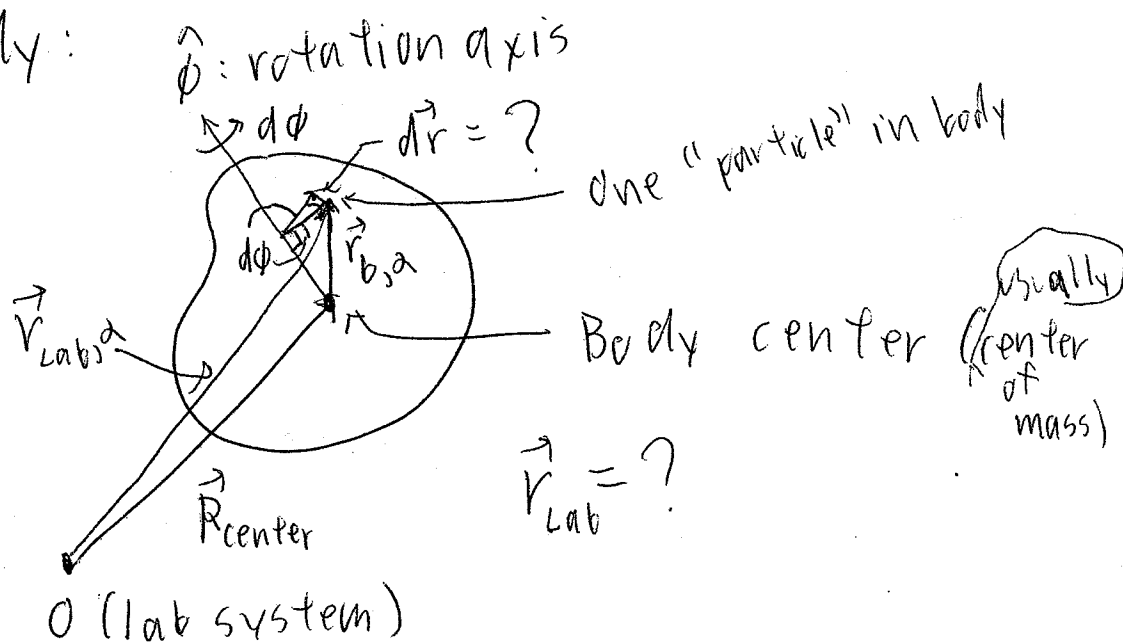 ly:
φ̂: rotation axis
dφ
d⃗r = ?
one "particle" in body
dφ
r⃗b,α
r⃗Lab,α
Body center (usually
center
of
mass)
R⃗center
r⃗Lab = ?
O (lab system)